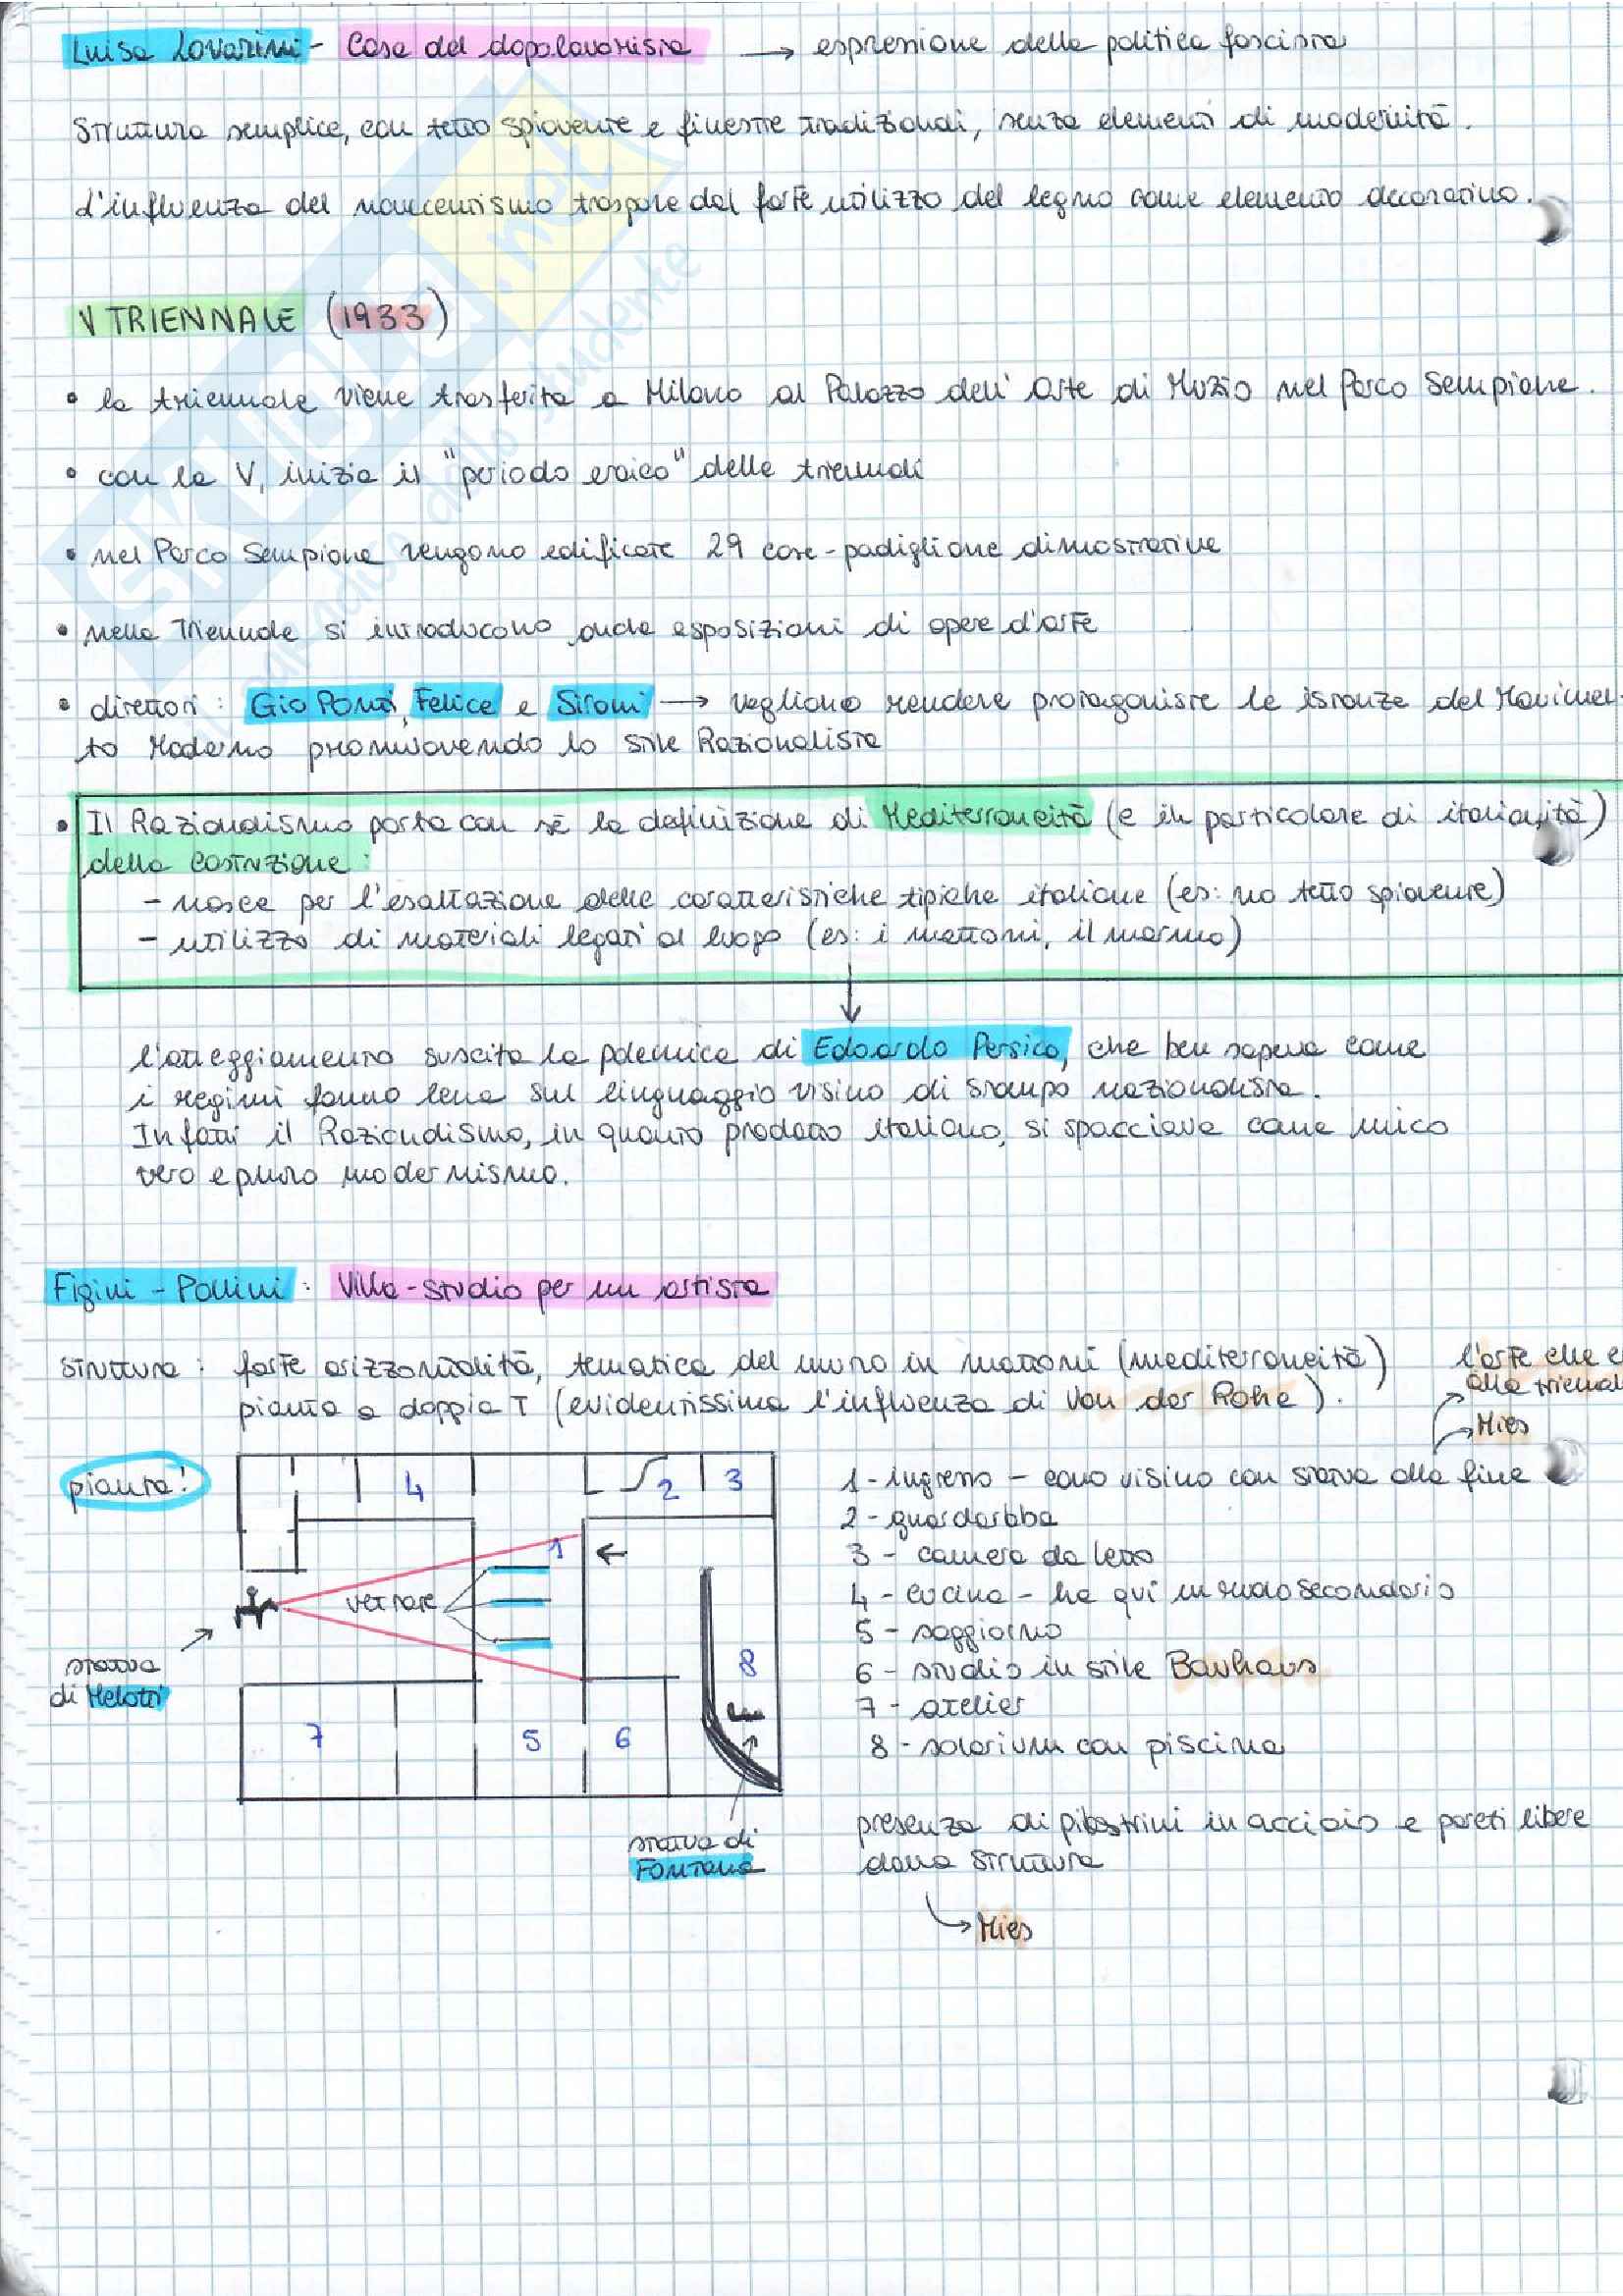 Luisa Lovarini - Casa del dopolavorista → espressione della politica fascista
Struttura semplice, con tetto spiovente e finestre tradizionali, senza elementi di modernità.
L'influenza del novecentismo traspare dal forte utilizzo del legno come elemento decorativo.
V TRIENNALE (1933)
• la triennale viene trasferita a Milano al Palazzo dell'Arte di Muzio nel Parco Sempione.
• con la V, inizia il "periodo eroico" delle triennali
• nel Parco Sempione vengono edificate 29 case-padiglione dimostrative
• nella Triennale si introducono anche esposizioni di opere d'arte
• direttori: Gio Ponti, Felice e Sironi → vogliono rendere protagoniste le istanze del Movimen-
to Moderno promuovendo lo stile Razionalista
• Il Razionalismo porta con sé la definizione di Mediterraneità (e in particolare di italianità)
della costruzione:
- nasce per l'esaltazione delle caratteristiche tipiche italiane (es: no tetto spiovente)
- utilizzo di materiali legati al luogo (es: i mattoni, il marmo)
l'atteggiamento suscita la polemica di Edoardo Persico, che ben sapeva come
i regimi fanno leva sul linguaggio visivo di stampo nazionalista.
Infatti il Razionalismo, in quanto prodotto italiano, si spacciava come unico
vero e puro modernismo.
Figini - Pollini: Villa-studio per un artista
struttura: forte orizzontalità, tematica del muro in mattoni (mediterraneità)
pianta a doppia T (evidentissima l'influenza di Van der Rohe).
l'arte che e
alla triennal
Mies
pianta!
4
2
3
1
vetrate
8
7
5
6
statua
di Melotti
statua di
Fontana
1 - ingresso - cono visivo con statua alla fine
2 - guardaroba
3 - camera da letto
4 - cucina - ha qui un ruolo secondario
5 - soggiorno
6 - studio in stile Bauhaus
7 - atelier
8 - solarium con piscina
presenza di pilastrini in acciaio e pareti libere
dalla struttura
Mies
skuola.net